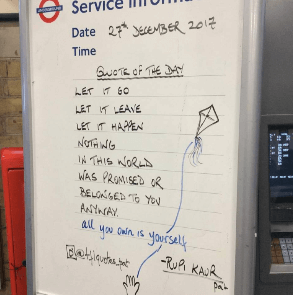 Service Informa
Date 27th DECEMBER 2017
Time
QUOTE OF THE DAY
LET IT GO
LET IT LEAVE
LET IT HAPPEN
NOTHING
IN THIS WORLD
WAS PROMISED OR
BELONGED TO YOU
ANYWAY.
all you own is yourself
-RUPI KAUR